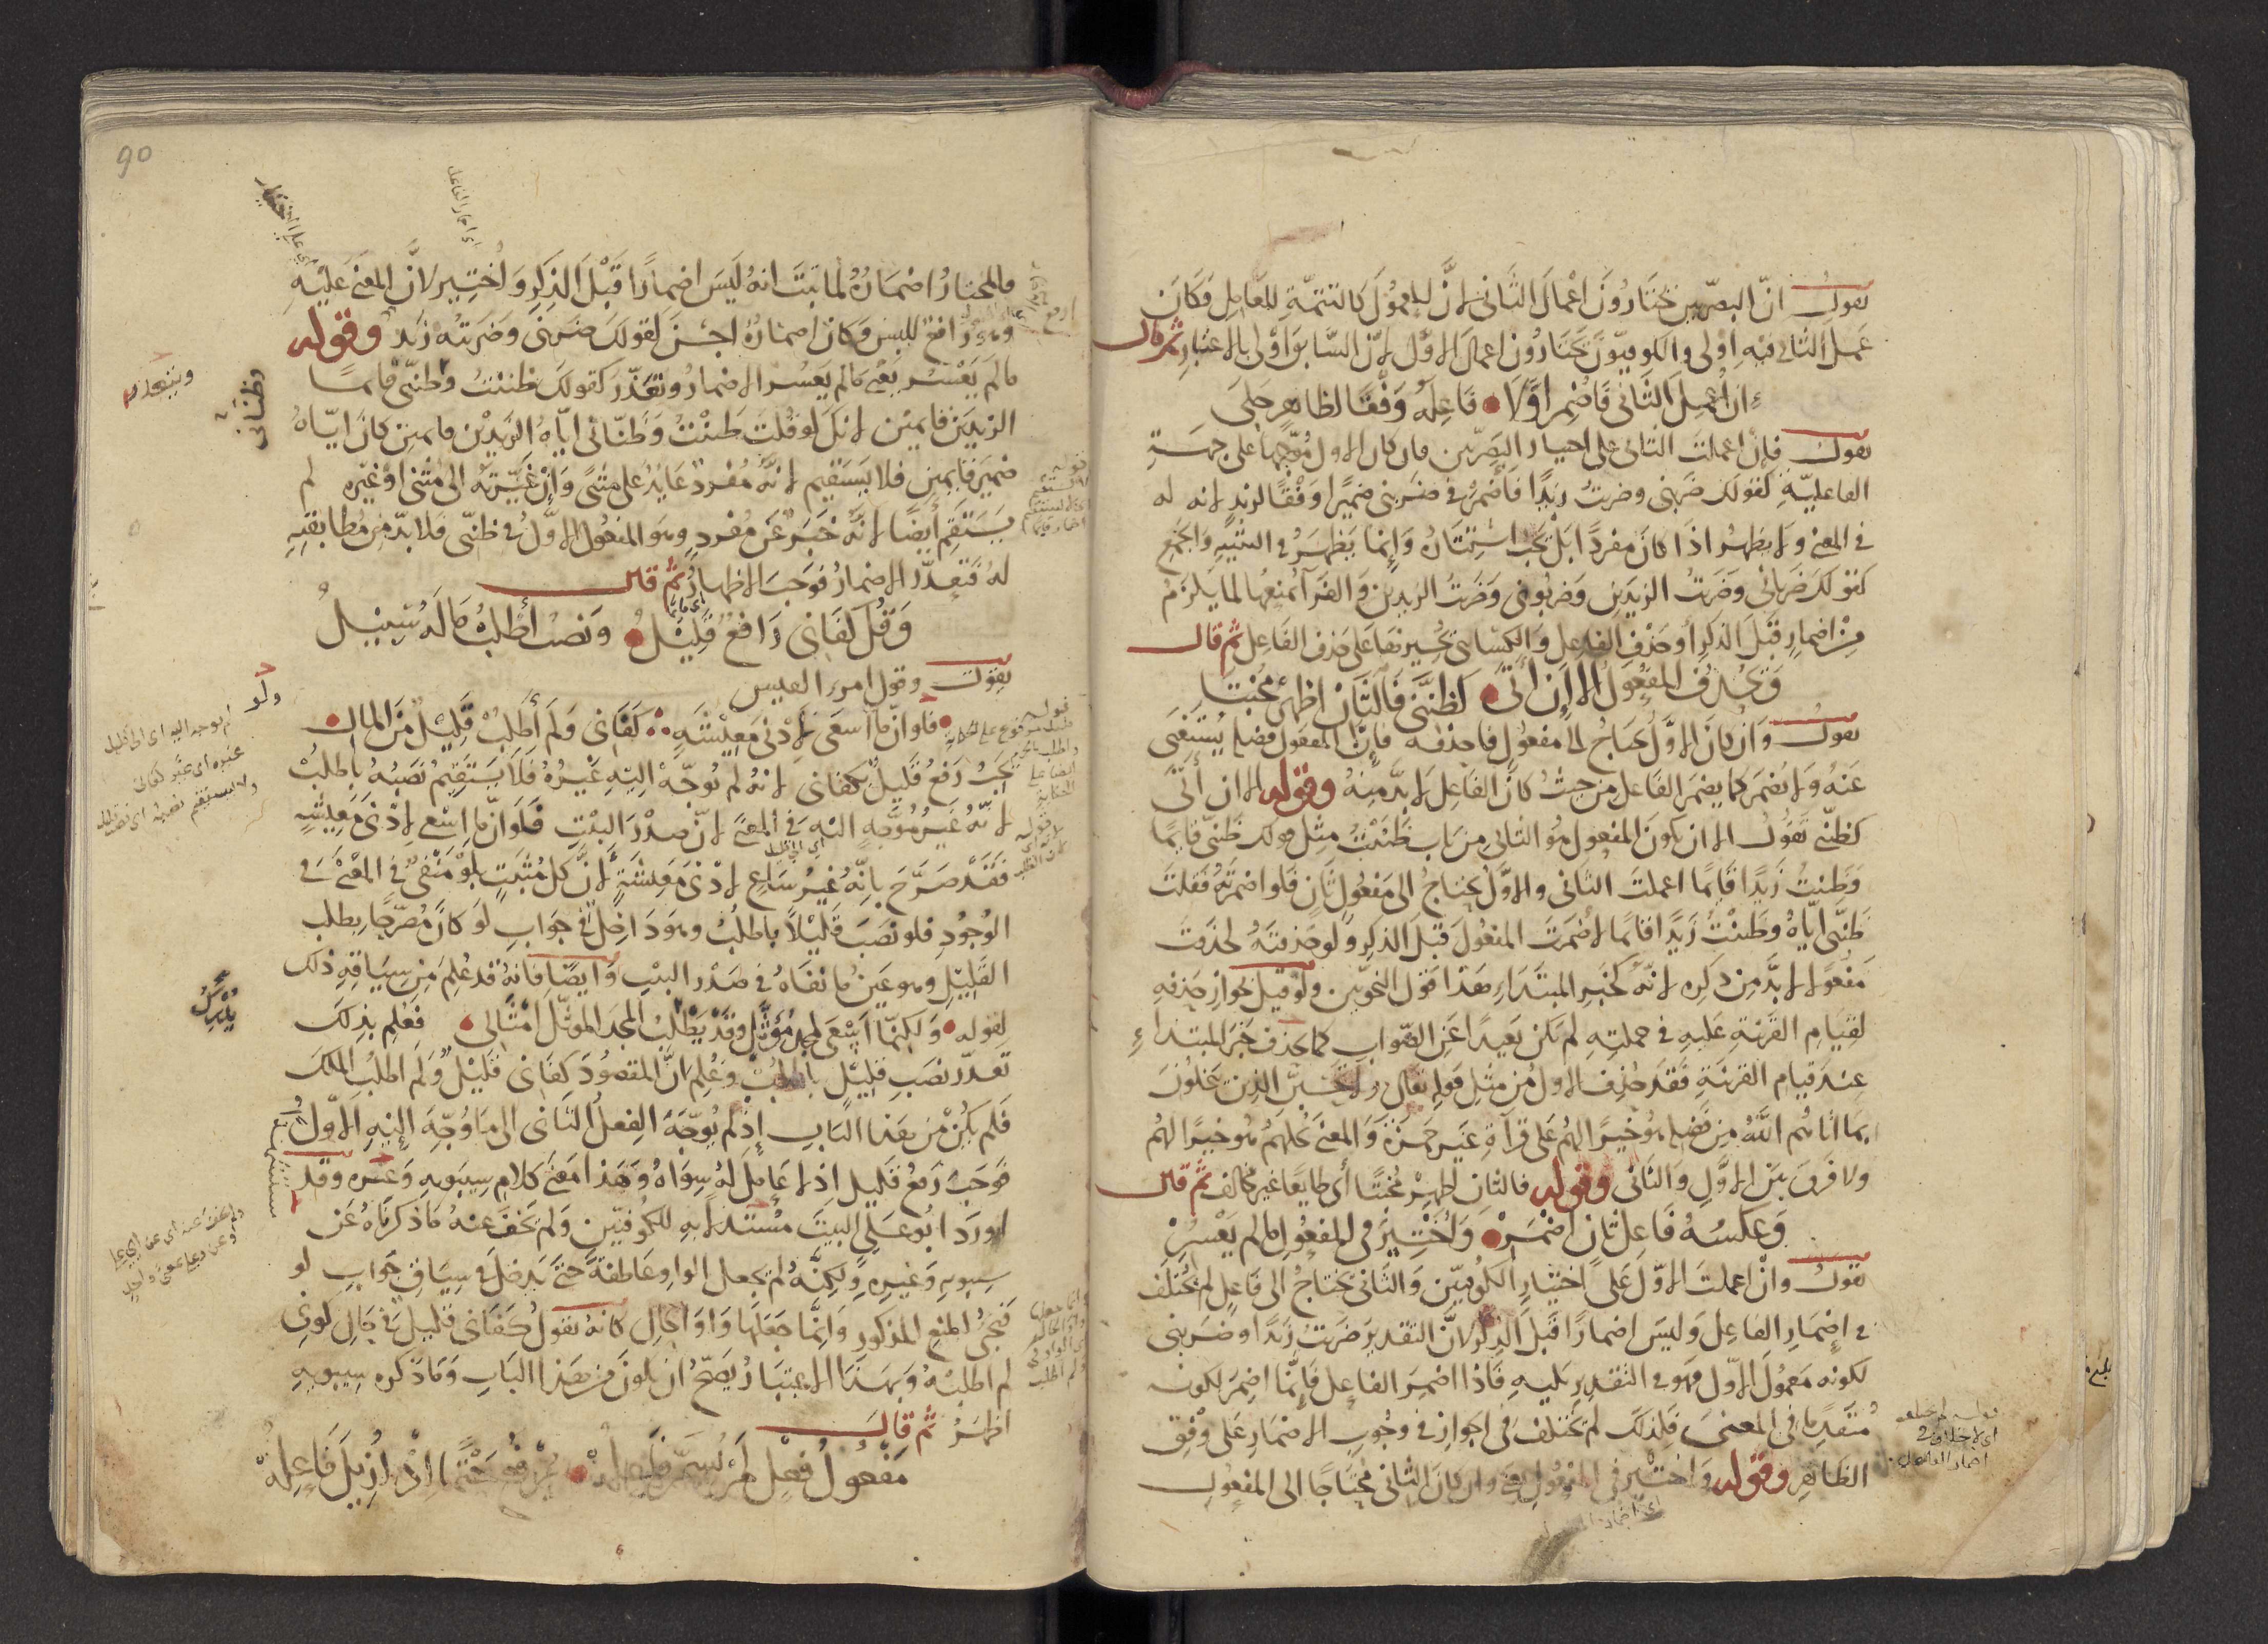 نقول انّ البصريين يختارون اعمال الثاني لانّ المعمول كالتتمة للعامل فكان
عمل الثاني فيه اولى والكوفيون يختارون اعمال الاول لانّ السابق اولى بالاعتبار ثم قال
ان اعمل الثاني فاضمر اولا فاعله وفقا لظاهر جلى
نقول فان اعملت الثاني على اختيار البصريين فان كان الاول موجها على جهة
الفاعلية كقولك ضربني وضربت زيدا فاضمر في ضربني ضميرا وفقا لزيد لانه له
في المعنى ولا يظهر اذا كان مفردا بل يجب استتاره وانما يظهر في التثنية والجمع
كقولك ضرباني وضربت الزيدين وضربوني وضربت الزيدين والفراء يمنعها لما يلزم
من اضمار قبل الذكر او حذف الفاعل والكسائي يجيزها على حذف الفاعل ثم قال
ويحذف المفعول الا ان اتى كظننى فالثان اظهر مخبتا
نقول وان كان الاول يحتاج الى مفعول فاحذفه فان المفعول فضلة يستغنى
عنه ولا يضمر كما يضمر الفاعل من حيث كان الفاعل لا بد منه وقوله الا ان اتى
كظني نقول الا ان يكون المفعول هو الثاني من باب ظننت مثل قولك ظنني قائما
وظننت زيدا قائما اعملت الثاني والاول يحتاج الى مفعول ثان فلو اضمرته فقلت
ظنني اياه وظننت زيدا قائما لاضمرت المفعول قبل الذكر ولو حذفته لحذفت
مفعولا لا بد من ذكره لانه كخبر المبتداء هذا قول النحويين ولو قيل بجواز حذفه
لقيام القرينة عليه في جملته لم يكن بعيدا عن الصواب كما يحذف خبر المبتداء
عند قيام القرينة فقد حذف الاول من مثل قوله تعالى ولا يحسبن الذين يبخلون
بما اتاهم الله من فضله هو خيرا لهم على قراءة غير حمزة والمعنى بخلهم هو خيرا لهم
ولا فرق بين الاول والثاني وقوله فالثان اظهر مخبتا اى طايعا غير مخالف ثم قال
وعكسه فاعل ثان اضمر واختير في المفعول ما لم يعسر
نقول وان اعملت الاول على اختيار الكوفيين والثاني يحتاج الى فاعل لم يختلف
في اضمار الفاعل وليس اضمارا قبل الذكر لان التقدير ضربت زيدا وضربني
لكونه معمول الاول فهو في التقدير يليه فاذا اضمر الفاعل فانما اضمر لكونه
متقدما في المعنى فلذلك لم يختلف في الجواز في وجوب الاضمار على وفق
الظاهر وقوله واختير في المفعول يعني وان كان الثاني محتاجا الى المفعول
قوله لم يختلف
اى لا خلاف في
اضمار الفاعل
90
فالمختار اضماره لما ثبت انه ليس اضمارا قبل الذكر واختير لان المعنى عليه
وهو رافع للبس وكان اضماره احسن لقولك ضربني وضربته زيد وقوله
ما لم يعسر يعني ما لم يعسر الاضمار ويتعذر كقولك ظننت وظنني قائما
الزيدين قائمين لانك لو قلت ظننت وظناني اياه الزيدين قائمين كان اياه
ضمير قائمين فلا يستقيم لانه مفرد عايد على مثنى وان غيرته الى مثنى او غيره لم
يستقم ايضا لانه خبر عن مفرد وهو المفعول الاول في ظنني فلا بد من مطابقته
له فتعذر الاضمار فوجب الاظهار ثم قال
وقل كفاني رافع قليل ونصب اطلب ما له سبيل
نقول وقول امرء القيس
فلو انّ ما اسعى لادنى معيشة كفاني ولم اطلب قليل من المال
يجب رفع قليل بكفاني لانه لم يوجّه اليه غيره فلا يستقيم نصبه باطلب
لانه غير موجه اليه في المعنى لان صدر البيت فلو ان ما اسعى لادنى معيشة
فقد صرّح بانه غير ساع لادنى معيشة لان كل مثبت بلو منفي في المعنى في
الوجود فلو نصب قليلا باطلب وهو داخل في جواب لو كان مصرحا بطلب
القليل وهو عين ما نفاه في صدر البيت وايضا فانه قد علم من سياقه ذلك
لقوله ولكنما اسعى لمجد مؤثل وقد يطلب المجد الموثل امثالي فعلم بذلك
تعذر نصب قليل باطلب وعلم ان المقصود كفاني قليل ولم اطلب الملك
فلم يكن من هذا الباب اذ لم يوجه الفعل الثاني الى ما وجه اليه الاول
فوجب رفع قليل اذ لا عامل له سواه وهذا معنى كلام سيبويه وغيره وقد
اورد ابو على البيت مستدلا به للكوفيين ولم يخف عنه ما ذكرناه عن
سيبويه وغيره ولكنه لم يجعل الواو عاطفة حتى يدخل في سياق جواب لو
فيجئ المنع المذكور وانما جعلها واو الحال كانه يقول كفاني قليل في حال كوني
لم اطلبه وبهذا الاعتبار يصح ان يكون من هذا الباب وما ذكره سيبويه
اظهر ثم قال
مفعول فعل لم يسم فاعله يرفع حتما اذ ازيل فاعله